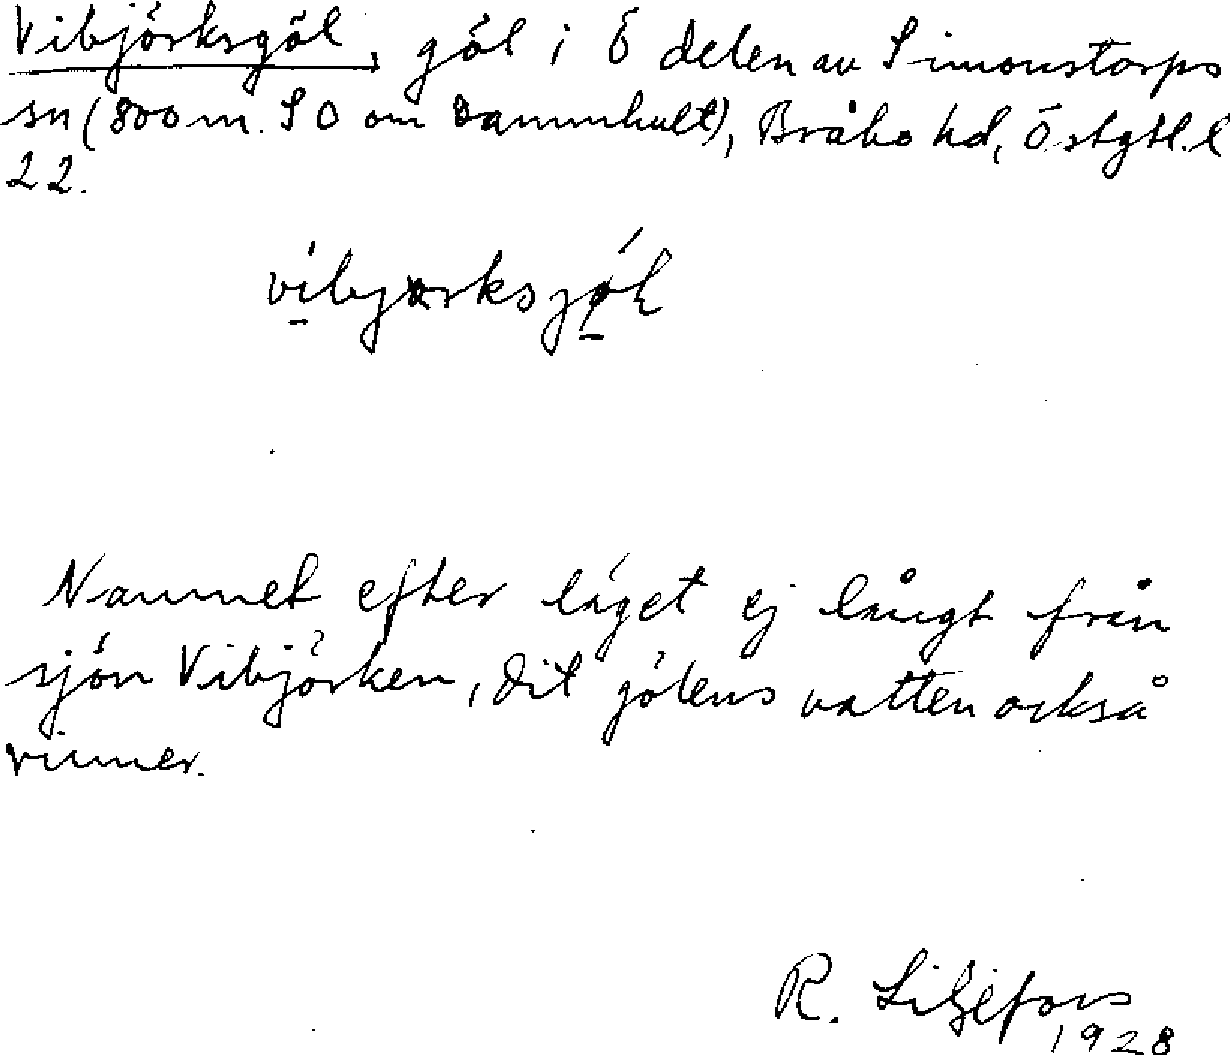 Vibjörksgöl, göl i Ö delen av Simonstorps
sn (800 m. SO om Dammhult), Bråbo hd, Östgtl. l
22.
Namnet efter läget ej långt från
sjön Vibjörken, dit gölens vatten också
rinner.
R. Liljefors
1928